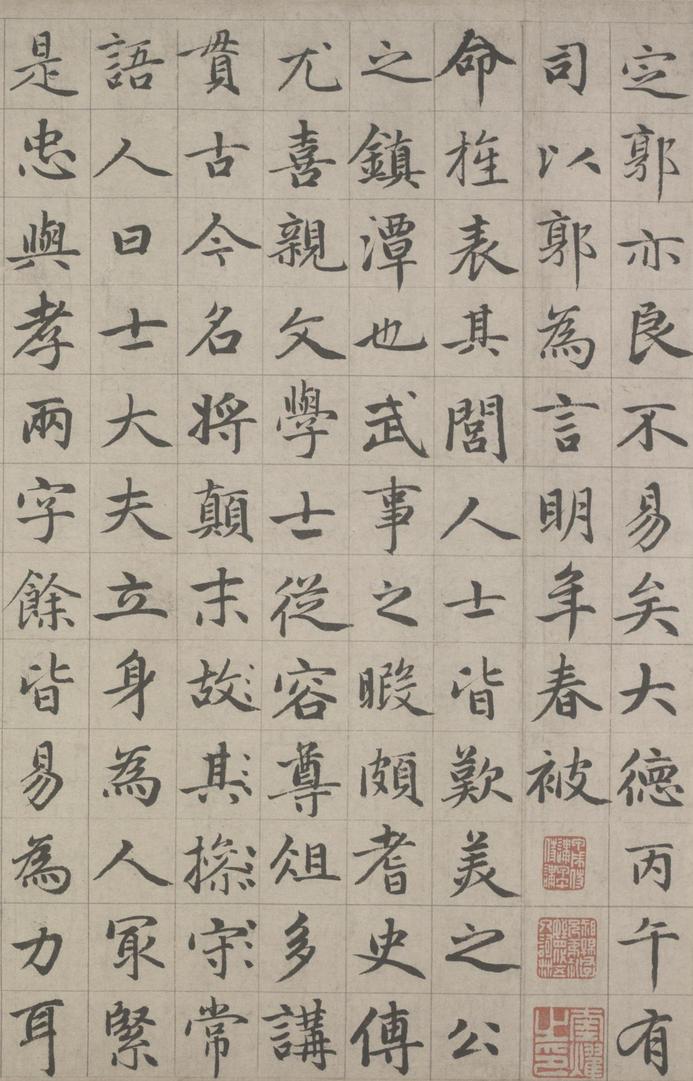 定郭亦良不易矣大德丙午有
司以郭為言明年春被
命旌表其閭人士皆歎羙之公
之鎮潭也武事之暇頗耆史傳
尤喜親文學士從容尊俎多講
貫古今名將顛末故其操守常
語人曰士大夫立身為人冣緊
是忠與孝兩字餘皆易為力耳